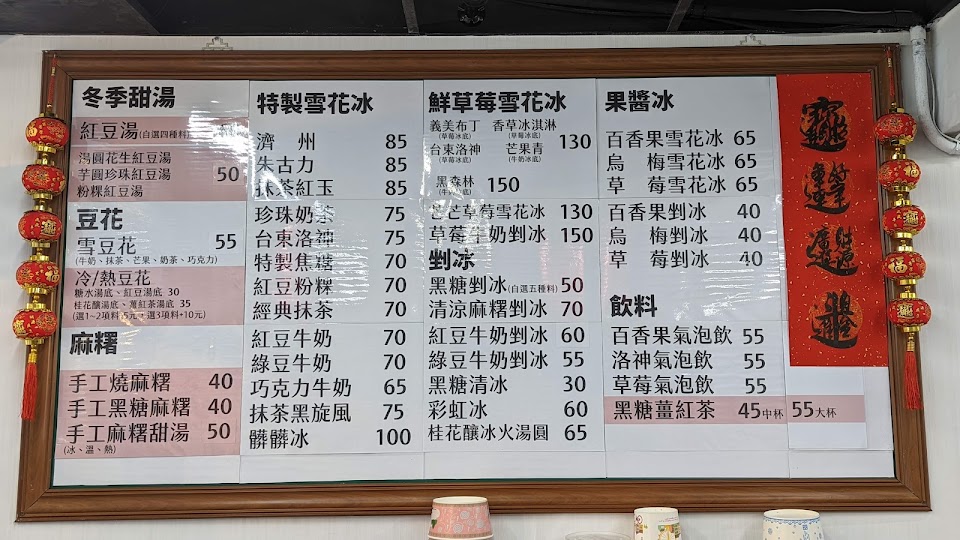 冬季甜湯
紅豆湯(自選四種料)
湯圓花生紅豆湯
芋圓珍珠紅豆湯 50
粉粿紅豆湯
豆花
雪豆花 55
(牛奶、抹茶、芒果、奶茶、巧克力)
冷/熱豆花
糖水湯底、紅豆湯底 30
桂花釀湯底、薑紅茶湯底 35
(選1~2項料+5元、選3項料+10元)
麻糬
手工燒麻糬 40
手工黑糖麻糬 40
手工麻糬甜湯 50
(冰、溫、熱)
特製雪花冰
濟 州 85
朱古力 85
抹茶紅玉 85
珍珠奶茶 75
台東洛神 75
特製焦糖 70
紅豆粉粿 70
經典抹茶 70
紅豆牛奶 70
綠豆牛奶 70
巧克力牛奶 65
抹茶黑旋風 75
髒髒冰 100
鮮草莓雪花冰
義美布丁 香草冰淇淋
(草莓冰底) (草莓冰底)
130
台東洛神 芒果青
(草莓冰底) (牛奶冰底)
黑森林 150
芒芒草莓雪花冰 130
草莓牛奶剉冰 150
剉冰
黑糖剉冰(自選五種料) 50
清涼麻糬剉冰 70
紅豆牛奶剉冰 60
綠豆牛奶剉冰 55
黑糖清冰 30
彩虹冰 60
桂花釀冰火湯圓 65
果醬冰
百香果雪花冰 65
烏 梅雪花冰 65
草 莓雪花冰 65
百香果剉冰 40
烏 梅剉冰 40
草 莓剉冰 40
飲料
百香果氣泡飲 55
洛神氣泡飲 55
草莓氣泡飲 55
黑糖薑紅茶 45中杯 55大杯